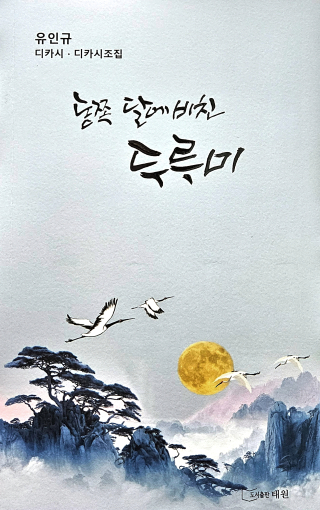 유인규
디카시 · 디카시조집
동쪽 달에 비친
두룻미
도서출판 태원